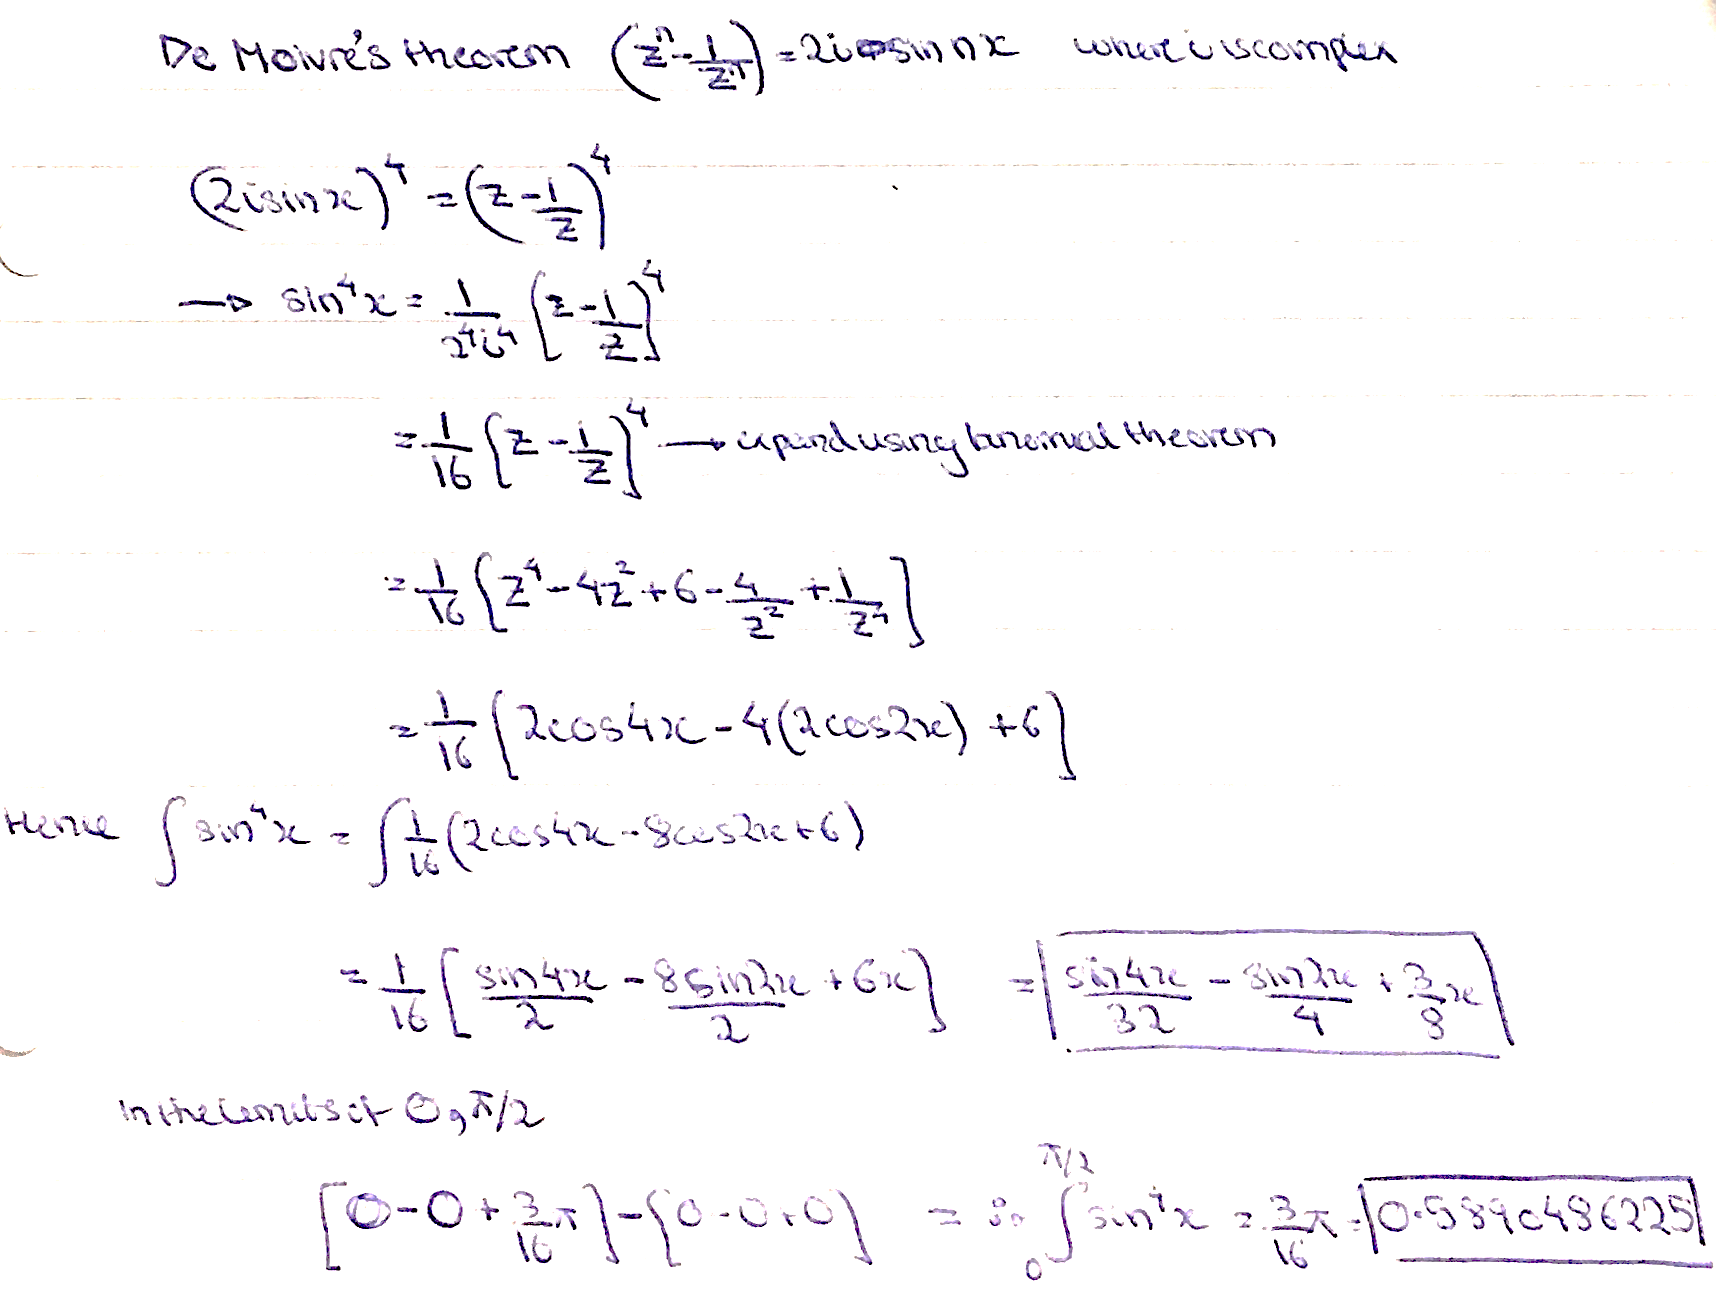 De Moivre's theorem (z^n - 1/z^n) = 2i sin nx where i is complex
(2i sin x)^4 = (z - 1/z)^4
→ sin^4 x = 1/(2^4 i^4) [z - 1/z]^4
= 1/16 [z - 1/z]^4 → expand using binomial theorem
= 1/16 [z^4 - 4z^2 + 6 - 4/z^2 + 1/z^4]
= 1/16 [2cos4x - 4(2cos2x) + 6]
Hence ∫ sin^4 x = ∫ 1/16 (2cos4x - 8cos2x + 6)
= 1/16 [sin4x/2 - 8sin2x/2 + 6x] = sin4x/32 - sin2x/4 + 3/8 x
in the limits of 0, π/2
[0 - 0 + 3/16 π] - [0 - 0 + 0] = ∫_0^{π/2} sin^4 x = 3/16 π = 0.5890486225